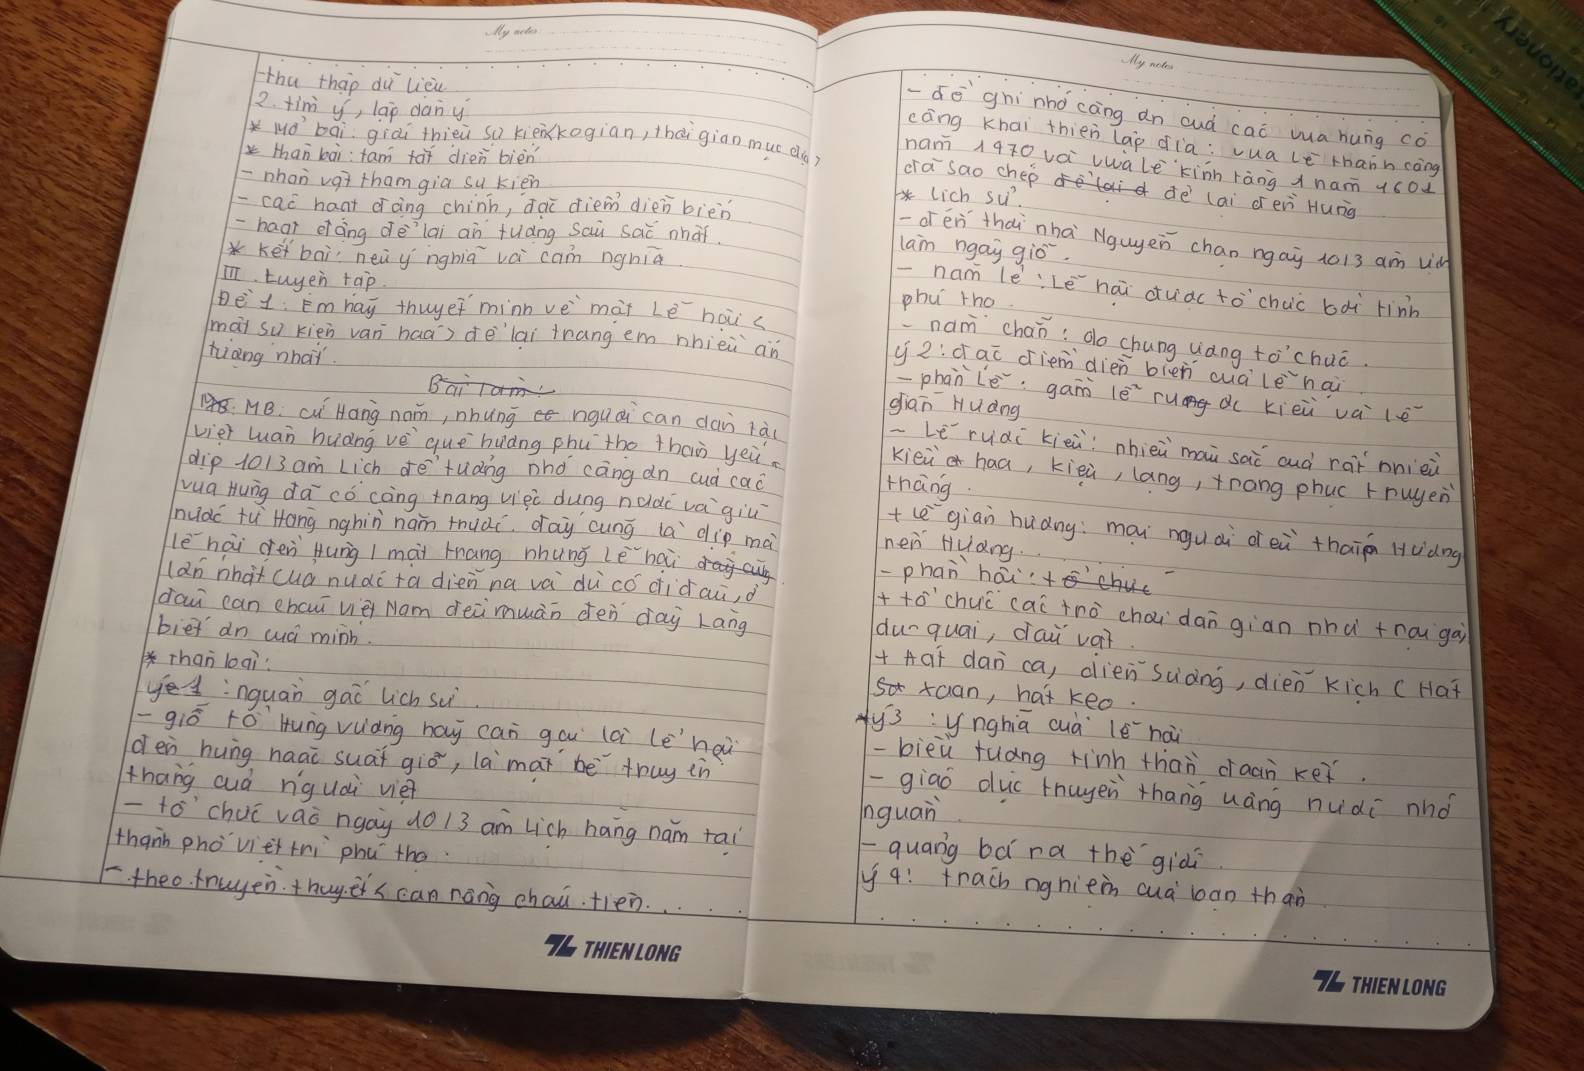 My notes
- thu thập dữ liệu
2. tìm ý, lập dàn ý
* Mở bài: giới thiệu sự kiện (kogian, thời gian mục đích)
* thân bài: tóm tắt diễn biến
- nhân vật tham gia sự kiện
- các hoạt động chính, đặc điểm diễn biến
- hoạt động để lại ấn tượng sâu sắc nhất.
* Kết bài: nêu ý nghĩa và cảm nghĩ
III. Luyện tập.
Đề 1: Em hãy thuyết minh về một Lễ hội (
một sự kiện văn hoá) để lại trong em nhiều ấn
tượng nhất.
Bài làm:
MB: cứ Hàng năm, những người con dân tộc
việt luôn hướng về quê hương phú thọ thân yêu
dịp 10/3 âm Lịch để tưởng nhớ công ơn của các
vua Hùng đã có công trong việc dựng nước và giữ
nước từ Hàng nghìn năm trước. đây cũng là dịp mà
lễ hội đền Hùng 1 một trong những lễ hội đây cũng
lớn nhất của nước ta diễn ra và dù có đi đâu, ở
đâu con cháu việt Nam đều muốn đến đây Lòng
biết ơn của mình.
* Thân bài:
ý 1: nguồn gốc lịch sử.
- giỗ tổ Hùng vương hay còn gọi là lễ hội
đền hùng hoặc suốt giỗ, là một bề truyền
thống của người việt
- tổ chức vào ngày 10/3 âm lịch hằng năm tại
thành phố việt trì phú thọ.
- theo truyền thuyết < con rồng cháu tiên...
THIEN LONG
My notes
- để ghi nhớ công ơn của các vua hùng có
công khai thiên lập địa: vua Lê thánh công
năm 1470 và vua lê kính tông 1 năm 1601
đã sao chép để lại ở để lại đền Hùng
* lịch sử.
- đến thời nhà Nguyễn chọn ngày 10/3 âm lịch
làm ngày giỗ.
- năm lẻ: Lễ hội được tổ chức bởi tỉnh
phú thọ
- năm chẵn: do chung ương tổ chức.
ý 2: đặc điểm diễn biến của lễ hội
- phần lễ: gồm lễ rước kiệu và lễ
giân Hương
- Lễ rước kiệu: nhiều màu sắc của rất nhiều
kiệu hoa, kiệu, lọng, trang phục truyền
thống.
+ lễ giân hương: mọi người đều thắp Hương
nến Hương...
- phần hội: + tổ chức
+ tổ chức các trò chơi dân gian như trọi gà,
du quay, đấu vật.
+ Hát dân ca, diễn sướng, diễn kịch (Hát
xoan, hát kẹo.
* ý 3: ý nghĩa của lễ hội
- biểu tượng tinh thần đoàn kết.
- giáo dục truyền thống uống nước nhớ
nguồn.
- quảng bá ra thế giới.
ý 4: trách nghiệm của bản thân
THIEN LONG